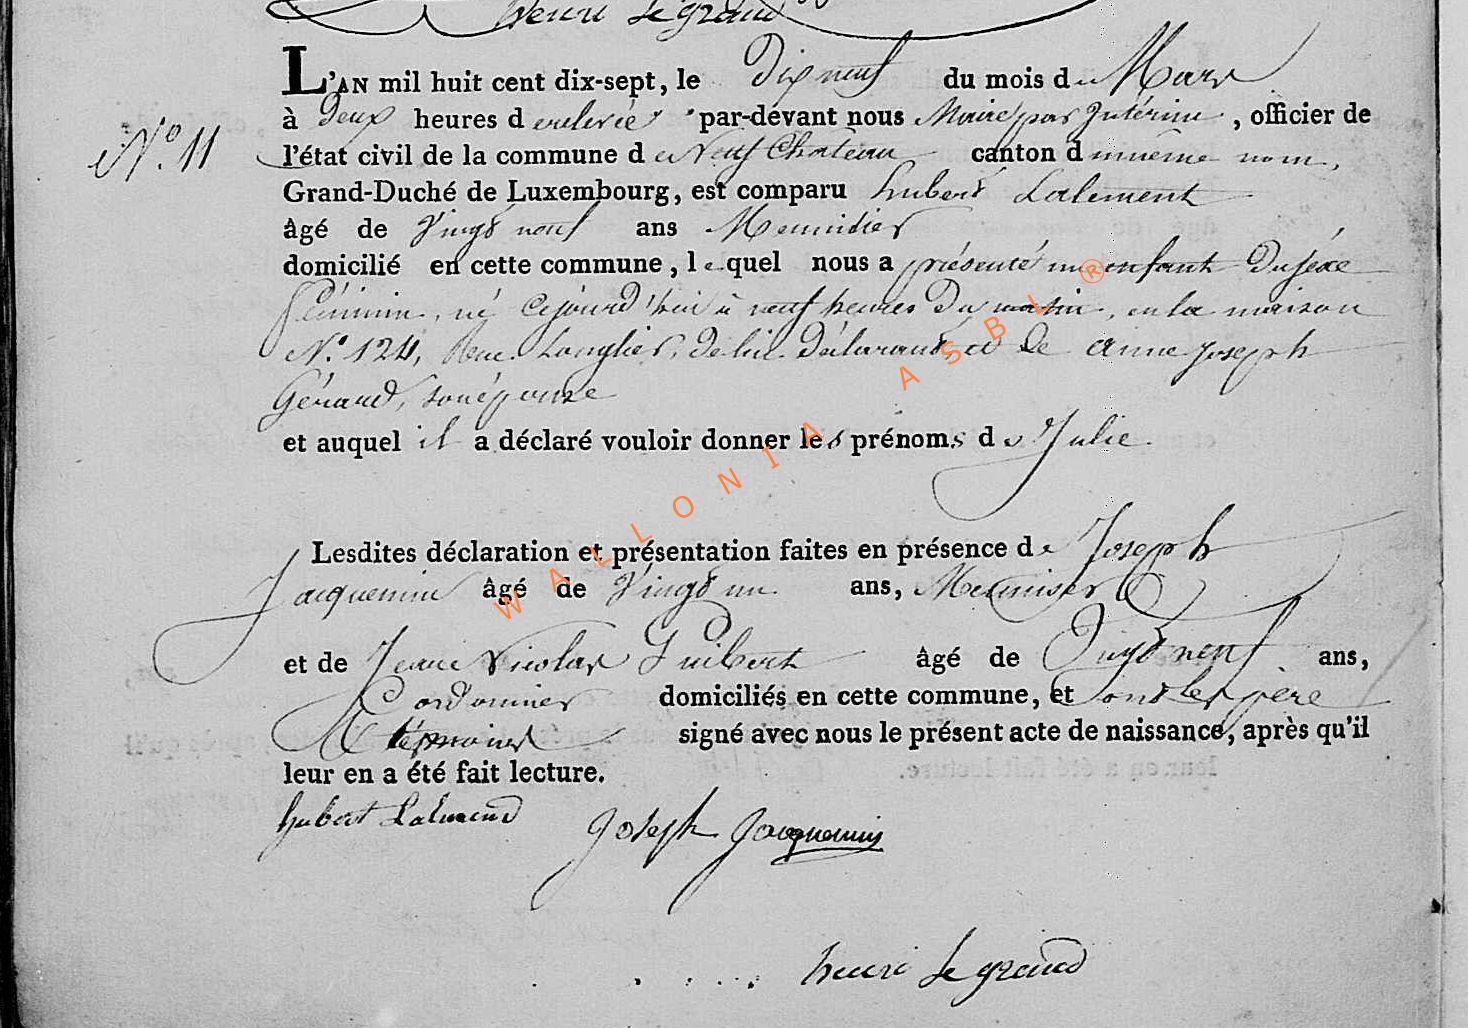 henri Legrand
L'AN mil huit cent dix-sept, le Dix neuf du mois de Mars
N.° 11
à Deux heures de relevée par-devant nous Maire par Intérim, officier de
l'état civil de la commune de Neuf Chateau canton du même nom,
Grand-Duché de Luxembourg, est comparu hubert Lalement
âgé de Vingt neuf ans Meunidier
domicilié en cette commune, lequel nous a présenté un enfant Du séxe
féminin, né cejourd'hui à neuf heures Du matin, en la maison
N.° 124, Rue Longlier, de lui Déclarant, et De anne joseph
Gérard, son épouse
et auquel il a déclaré vouloir donner les prénoms de Julie.
Lesdites déclaration et présentation faites en présence de Joseph
Jacquemin âgé de Vingt un ans, Meunisier
et de Jean Nicolas Guibert âgé de Vingt neuf ans,
Cordonnier domiciliés en cette commune, et ont les père
& témoins signé avec nous le présent acte de naissance, après qu'il
leur en a été fait lecture.
hubert Lalmand
Joseph Jacquemin
henri Legrand
WALLONIA ASBL ®